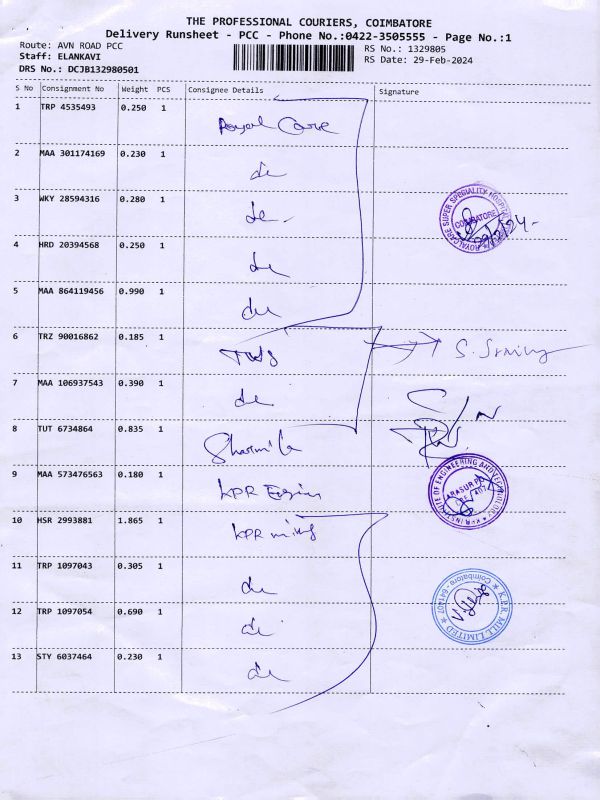 THE PROFESSIONAL COURIERS, COIMBATORE
Delivery Runsheet - PCC - Phone No.:0422-3505555 - Page No.:1
Route: AVN ROAD PCC RS No.: 1329805
Staff: ELANKAVI RS Date: 29-Feb-2024
DRS No.: DCJB132980501
S No Consignment No Weight PCS Consignee Details Signature
1 TRP 4535493 0.250 1 Royal Care
2 MAA 301174169 0.230 1 do
3 WKY 28594316 0.280 1 do
ROYALCARE SUPER SPECIALITY HOSPITAL
COIMBATORE
29/2/24
4 HRD 20394568 0.250 1 do
5 MAA 864119456 0.990 1 do
6 TRZ 90016862 0.185 1
7 MAA 106937543 0.390 1 do
8 TUT 6734864 0.835 1 Sharmila
9 MAA 573476563 0.180 1 KPR
KPR INSTITUTE OF ENGINEERING AND TECHNOLOGY
ARASUR
10 HSR 2993881 1.865 1 KPR
11 TRP 1097043 0.305 1 do
K.P.R. MILL LIMITED
Coimbatore - 641407
12 TRP 1097054 0.690 1 do
13 STY 6037464 0.230 1 do